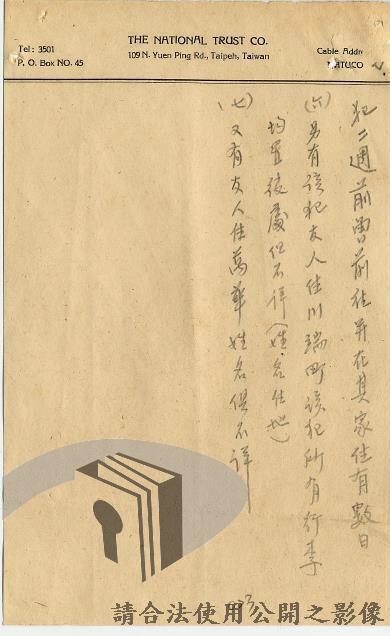 THE NATIONAL TRUST CO.
109 N. Yuen Ping Rd., Taipeh, Taiwan
Tel: 3501
P. O. Box NO. 45
Cable Addre
NATUCO
犯二週前曾前往并在其家住有數日
(六)另有該犯友人住川瑞町該犯所有行李
均置彼處但不詳(姓名住地)
(七)又有友人住萬華姓名俱不詳
請合法使用公開之影像